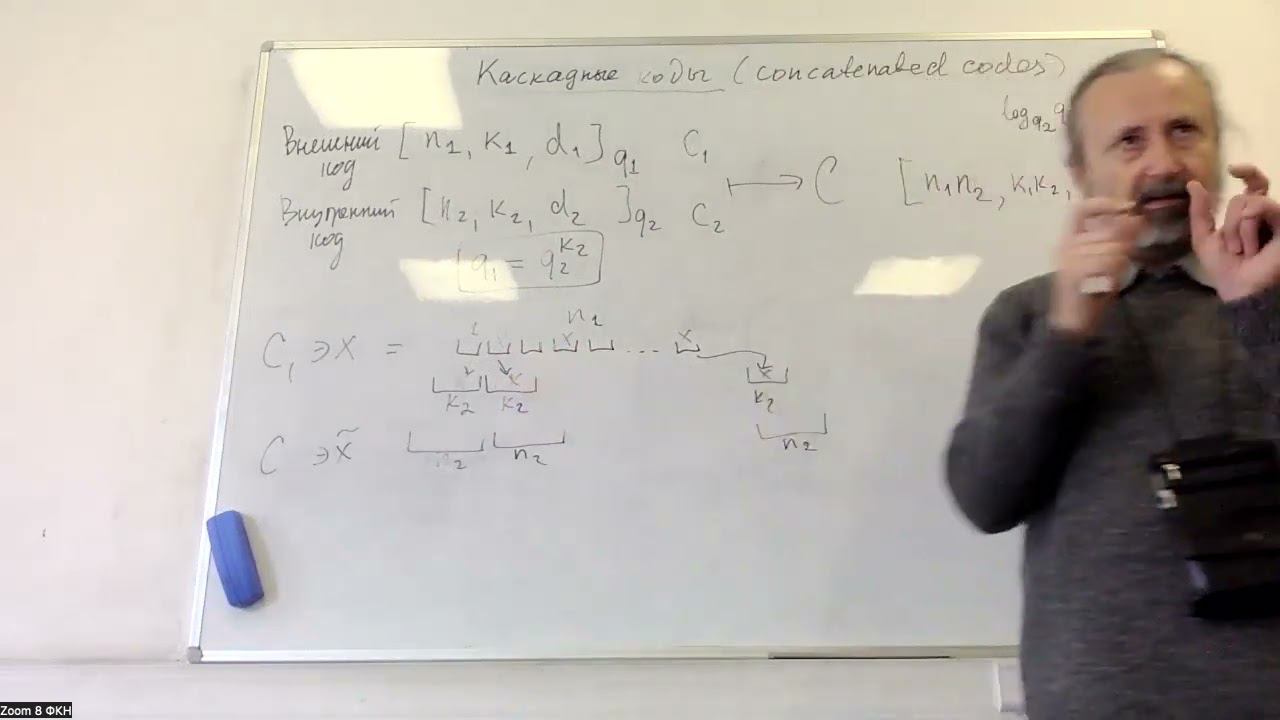 Каскадные коды (concatenated codes)
log_{q_2} q
Внешний код [n_1, k_1, d_1]_{q_1} C_1
Внутренний код [n_2, k_2, d_2]_{q_2} C_2
↦ C [n_1 n_2, k_1 k_2,
q_1 = q_2^{k_2}
1 n_1
C_1 ∋ x = ...
k_2 k_2 k_2
C ∋ x̃
n_2 n_2 n_2
Zoom 8 ФКН